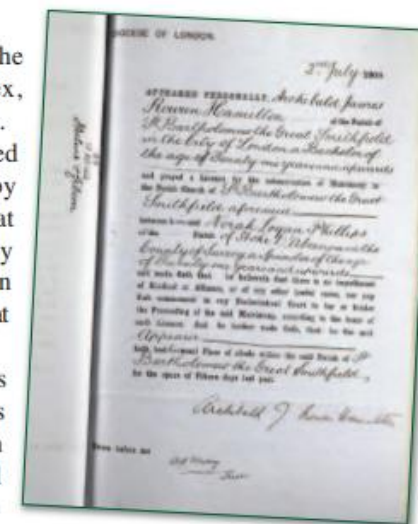 he
ex,
.
ed
by
at
y
n
at
s
s
n
l
DIOCESE OF LONDON.
2nd July
APPEARED PERSONALLY, Archibald James
Rowan Hamilton of the Parish of
St Bartholomew the Great Smithfield
in the City of London a Bachelor of
the age of twenty one years and upwards
and prayed a Licence for the solemnization of Matrimony in
the Parish Church of St Bartholomew the Great
Smithfield aforesaid
between him and Norah Logan Phillips
of the Parish of Stoke D'Abernon in the
County of Surrey a Spinster of the age
of twenty one years and upwards
and made Oath that he believeth that there is no impediment
of Kindred or Alliance, or of any other lawful cause, nor any
Suit commenced in any Ecclesiastical Court to bar or hinder
the Proceeding of the said Matrimony, according to the tenor of
such Licence. And he further made Oath, that he the said
Appearer
hath had usual Place of abode within the said Parish of St
Bartholomew the Great Smithfield,
for the space of Fifteen days last past.
Archibald J Rowan Hamilton
Sworn before me